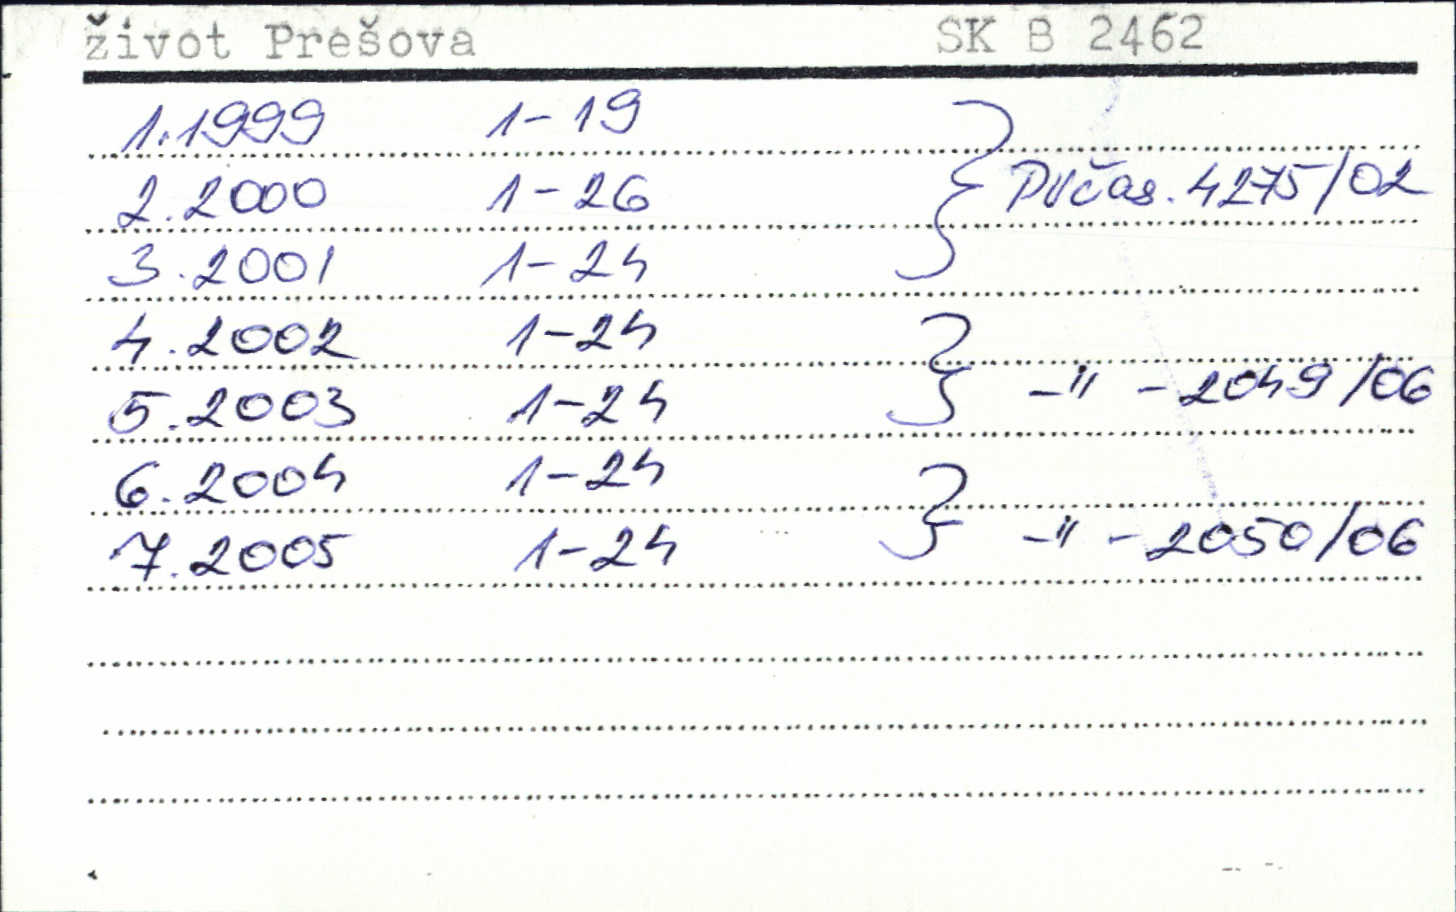 život Prešova SK B 2462
1.1999 1-19
2.2000 1-26 } PVčas. 4275/02
3.2001 1-24
4.2002 1-24
5.2003 1-24 } -"- 2049/06
6.2004 1-24
7.2005 1-24 } -"- 2050/06